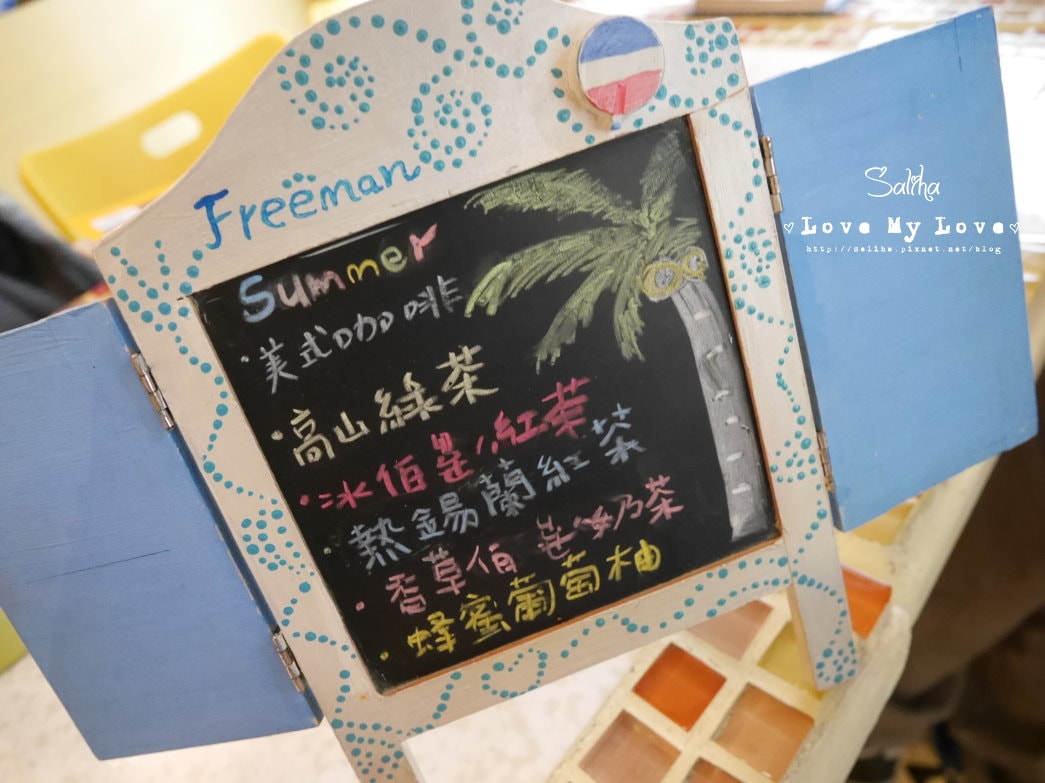 Freeman
Summer
·美式咖啡
·高山綠茶
·冰伯爵紅茶
·熱錫蘭紅茶
·香草伯爵奶茶
·蜂蜜葡萄柚
Saliha
♡Love My Love♡
http://Saliha.pixnet.net/blog